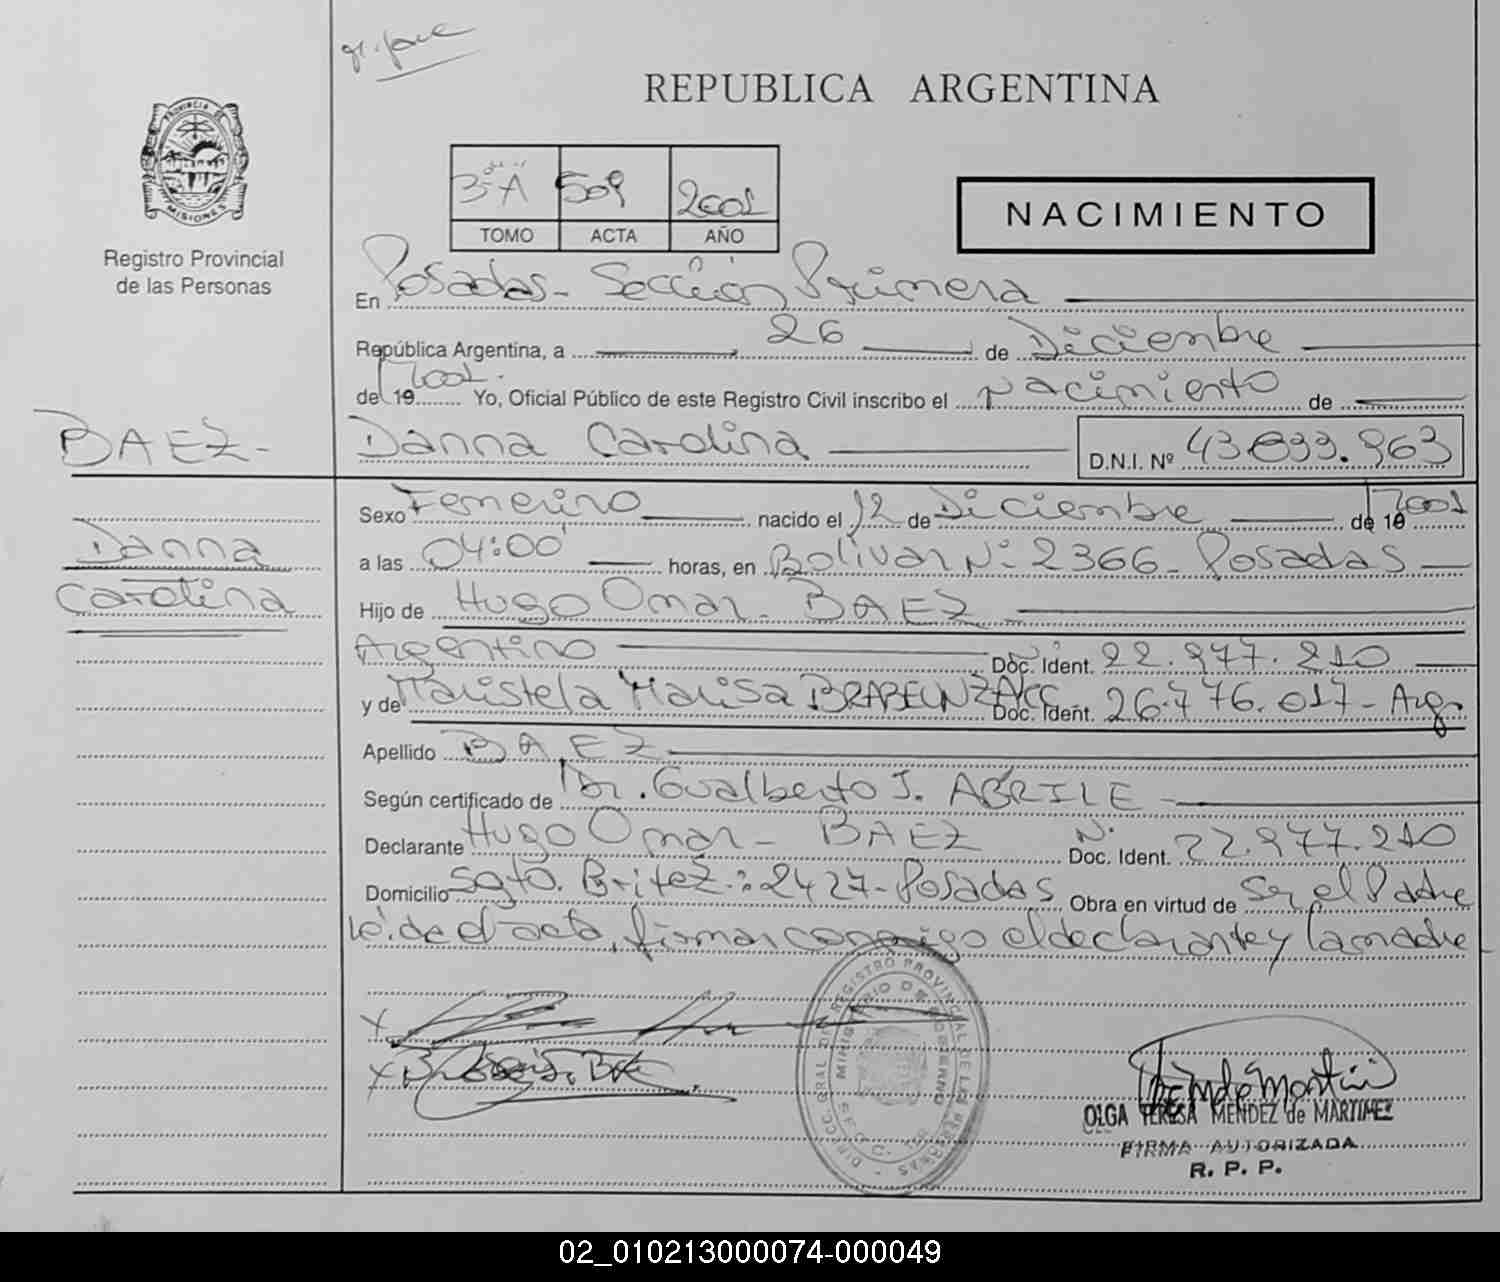 REPUBLICA ARGENTINA
PROVINCIA DE
MISIONES
Registro Provincial
de las Personas
3º A 509 2001
TOMO ACTA AÑO
NACIMIENTO
En Posadas - Sección Primera
República Argentina, a 26 de Diciembre
de 19 2001. Yo, Oficial Público de este Registro Civil inscribo el nacimiento de
BAEZ - Danna Carolina D.N.I. Nº 43.899.963
Danna
Carolina
Sexo Femenino nacido el 12 de Diciembre de 19 2001
a las 04:00 horas, en Bolivar Nº 2366 - Posadas
Hijo de Hugo Omar - BAEZ
Argentino Doc. Ident. 22.977.210
y de Maristela Marisa Doc. Ident. 26.776.017 - Arg.
Apellido BAEZ
Según certificado de Dr. Gualberto J. ABRILE
Declarante Hugo Omar - BAEZ Doc. Ident. Nº 22.977.210
Domicilio Sgto. Britez : 2427 - Posadas Obra en virtud de Ser el Padre
leída el acta, firman conmigo el declarante y la madre
DIRECC. GRAL. DEL REGISTRO PROVINCIAL DE LAS PERSONAS
MINISTERIO DE GOBIERNO
OLGA TERESA MENDEZ de MARTINEZ
FIRMA AUTORIZADA
R. P. P.
02_010213000074-000049